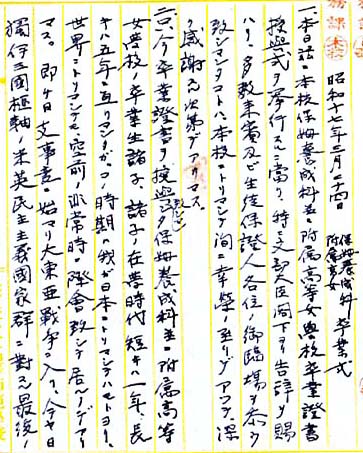 昭和十七年三月二十四日 保姆養成科 附属高女 卒業式
一、本日茲ニ本校保姆養成科並ニ附属高等女学校卒業證書
授與式ヲ挙行スルニ當リ、特ニ文部大臣閣下ヨリ告辞ヲ賜
ハリ、多数来賓及ビ生徒保證人各位ノ御臨場ヲ忝ウ
致シマシタコトハ、本校ニトリマシテ洵ニ幸榮ノ至リデアツテ、深
ク感謝スル次第デアリマス。
二、只今卒業證書ヲ授與致シマシタ保姆養成科並ニ附属高等
女学校ノ卒業生諸子、諸子ノ在学時代短キハ一年、長
キハ五年ニ亙リマシタガ、コノ時期ハ我ガ日本ニトリマシテハモトヨリ、
世界ニトリマシテモ空前ノ非常時ニ際會致シテ居ルノデアリ
マス。即チ日支事変ニ始マリ大東亜戦争ニ入リ、今ヤ日
獨伊三國枢軸ノ米英民主主義國家群ニ對スル最後ノ